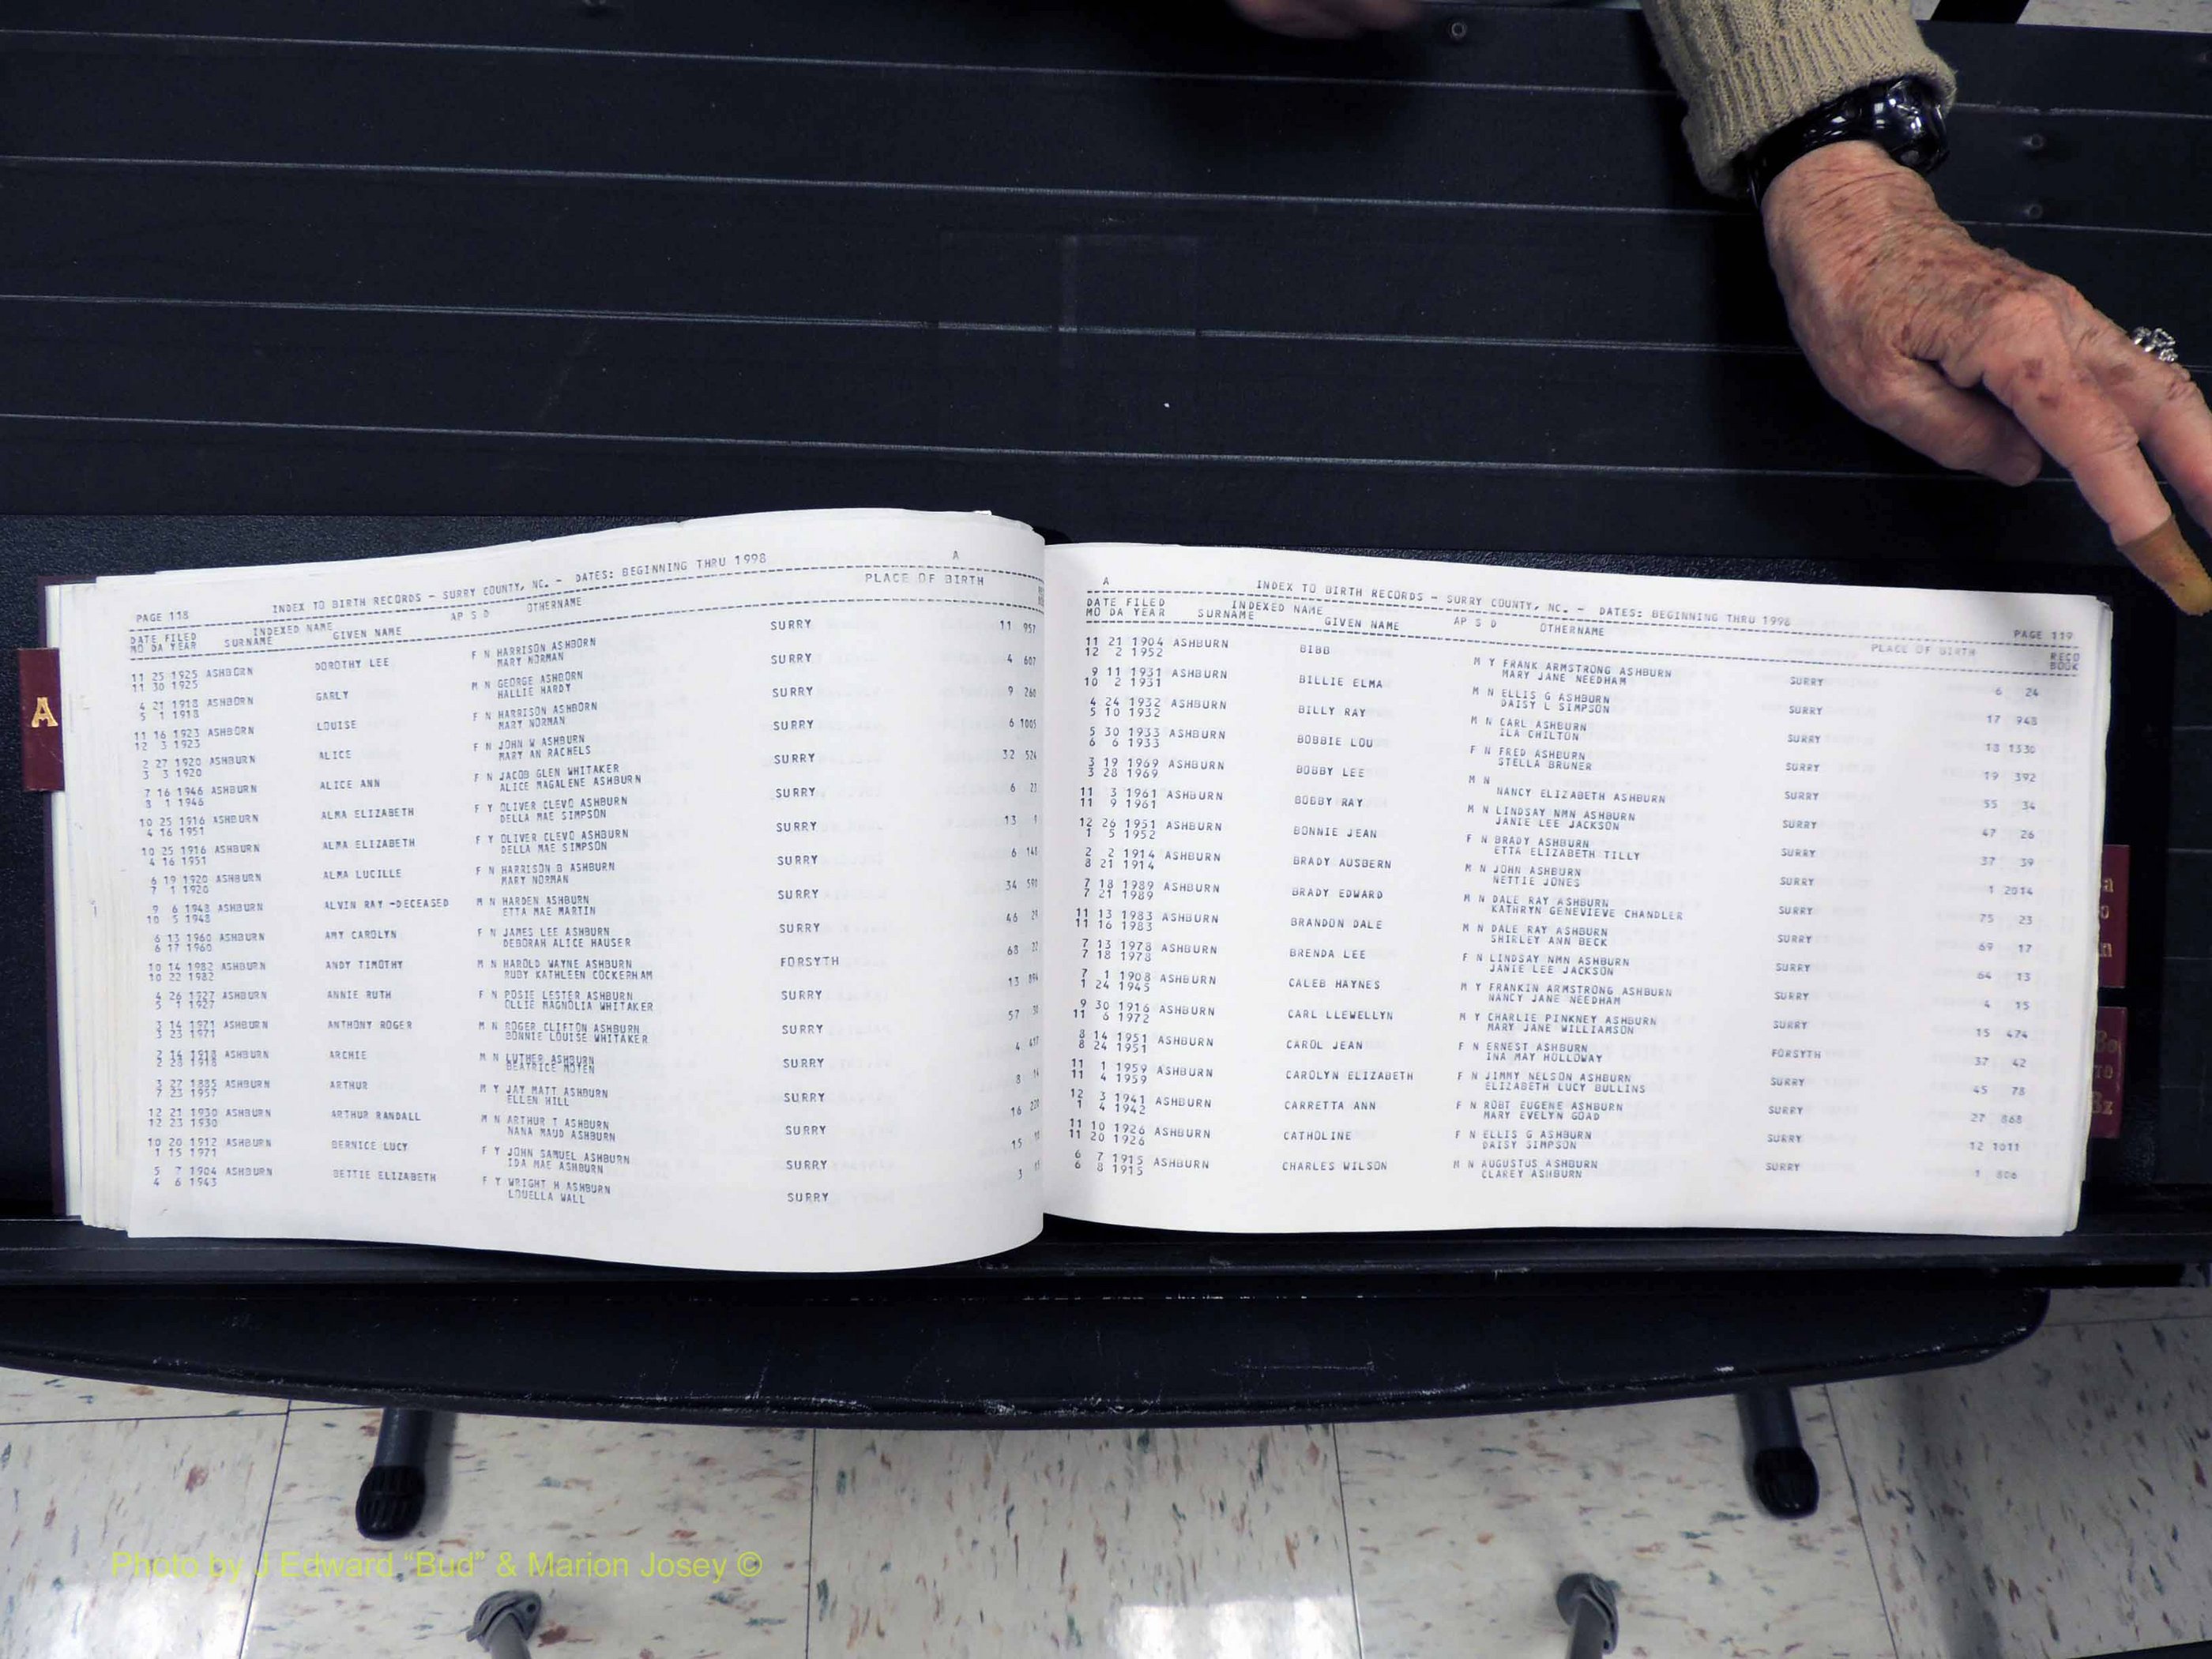 PAGE 118 INDEX TO BIRTH RECORDS - SURRY COUNTY, NC. - DATES: BEGINNING THRU 1998 A
DATE FILED INDEXED NAME AP S D OTHERNAME PLACE OF BIRTH
MO DA YEAR SURNAME GIVEN NAME
11 25 1925 ASHBORN DOROTHY LEE F N HARRISON ASHBORN SURRY 11 957
11 30 1925 MARY NORMAN
4 21 1918 ASHBORN GARLY M N GEORGE ASHBORN SURRY 4 607
5 1 1918 HALLIE HARDY
11 16 1923 ASHBORN LOUISE F N HARRISON ASHBORN SURRY 9 260
12 3 1923 MARY NORMAN
2 27 1920 ASHBURN ALICE F N JOHN W ASHBURN SURRY 6 1005
3 3 1920 MARY AN RACHELS
7 16 1946 ASHBURN ALICE ANN F N JACOB GLEN WHITAKER SURRY 32 524
8 1 1946 ALICE MAGALENE ASHBURN
10 25 1916 ASHBURN ALMA ELIZABETH F Y OLIVER CLEVO ASHBURN SURRY 6
4 16 1951 DELLA MAE SIMPSON
10 25 1916 ASHBURN ALMA ELIZABETH F Y OLIVER CLEVO ASHBURN SURRY 13
4 16 1951 DELLA MAE SIMPSON
6 19 1920 ASHBURN ALMA LUCILLE F N HARRISON B ASHBURN SURRY 6
7 1 1920 MARY NORMAN
9 6 1948 ASHBURN ALVIN RAY -DECEASED M N HARDEN ASHBURN SURRY 34
10 5 1948 ETTA MAE MARTIN
6 13 1960 ASHBURN AMY CAROLYN F N JAMES LEE ASHBURN SURRY 46
6 17 1960 DEBORAH ALICE HAUSER
10 14 1982 ASHBURN ANDY TIMOTHY M N HAROLD WAYNE ASHBURN FORSYTH 68
10 22 1982 RUBY KATHLEEN COCKERHAM
4 26 1927 ASHBURN ANNIE RUTH F N POSIE LESTER ASHBURN SURRY 13
5 1 1927 OLLIE MAGNOLIA WHITAKER
3 14 1971 ASHBURN ANTHONY ROGER M N ROGER CLIFTON ASHBURN SURRY 57
3 23 1971 BONNIE LOUISE WHITAKER
2 14 1918 ASHBURN ARCHIE M N LUTHER ASHBURN SURRY 4
2 28 1918 BEATRICE MOYEN
3 27 1885 ASHBURN ARTHUR M Y JAY MATT ASHBURN SURRY 8
7 23 1957 ELLEN HILL
12 21 1930 ASHBURN ARTHUR RANDALL M N ARTHUR T ASHBURN SURRY 16
12 23 1930 NANA MAUD ASHBURN
10 20 1912 ASHBURN BERNICE LUCY F Y JOHN SAMUEL ASHBURN SURRY 15
1 15 1971 IDA MAE ASHBURN
5 7 1904 ASHBURN BETTIE ELIZABETH F Y WRIGHT H ASHBURN SURRY 3
4 6 1943 LOUELLA WALL
A INDEX TO BIRTH RECORDS - SURRY COUNTY, NC. - DATES: BEGINNING THRU 1998 PAGE 119
DATE FILED INDEXED NAME AP S D OTHERNAME PLACE OF BIRTH RECO
MO DA YEAR SURNAME GIVEN NAME BOOK
11 21 1904 ASHBURN BIBB M Y FRANK ARMSTRONG ASHBURN SURRY 6 24
12 2 1952 MARY JANE NEEDHAM
9 11 1931 ASHBURN BILLIE ELMA M N ELLIS G ASHBURN SURRY 17 948
10 2 1931 DAISY L SIMPSON
4 24 1932 ASHBURN BILLY RAY M N CARL ASHBURN SURRY 18 1330
5 10 1932 ILA CHILTON
5 30 1933 ASHBURN BOBBIE LOU F N FRED ASHBURN SURRY 19 392
6 6 1933 STELLA BRUNER
3 19 1969 ASHBURN BOBBY LEE M N SURRY 55 34
3 28 1969 NANCY ELIZABETH ASHBURN
11 3 1961 ASHBURN BOBBY RAY M N LINDSAY NMN ASHBURN SURRY 47 26
11 9 1961 JANIE LEE JACKSON
12 26 1951 ASHBURN BONNIE JEAN F N BRADY ASHBURN SURRY 37 39
1 5 1952 ETTA ELIZABETH TILLY
2 2 1914 ASHBURN BRADY AUSBERN M N JOHN ASHBURN SURRY 1 2014
8 21 1914 NETTIE JONES
7 18 1989 ASHBURN BRADY EDWARD M N DALE RAY ASHBURN SURRY 75 23
7 21 1989 KATHRYN GENEVIEVE CHANDLER
11 13 1983 ASHBURN BRANDON DALE M N DALE RAY ASHBURN SURRY 69 17
11 16 1983 SHIRLEY ANN BECK
7 13 1978 ASHBURN BRENDA LEE F N LINDSAY NMN ASHBURN SURRY 64 13
7 18 1978 JANIE LEE JACKSON
7 1 1908 ASHBURN CALEB HAYNES M Y FRANKIN ARMSTRONG ASHBURN SURRY 4 15
1 24 1945 NANCY JANE NEEDHAM
9 30 1916 ASHBURN CARL LLEWELLYN M Y CHARLIE PINKNEY ASHBURN SURRY 15 474
11 6 1972 MARY JANE WILLIAMSON
8 14 1951 ASHBURN CAROL JEAN F N ERNEST ASHBURN FORSYTH 37 42
8 24 1951 INA MAY HOLLOWAY
11 1 1959 ASHBURN CAROLYN ELIZABETH F N JIMMY NELSON ASHBURN SURRY 45 78
11 4 1959 ELIZABETH LUCY BULLINS
12 3 1941 ASHBURN CARRETTA ANN F N ROBT EUGENE ASHBURN SURRY 27 868
1 4 1942 MARY EVELYN GOAD
11 10 1926 ASHBURN CATHOLINE F N ELLIS G ASHBURN SURRY 12 1011
11 20 1926 DAISY SIMPSON
6 7 1915 ASHBURN CHARLES WILSON M N AUGUSTUS ASHBURN SURRY 1 806
6 8 1915 CLAREY ASHBURN
A
Photo by J Edward "Bud" & Marion Josey ©